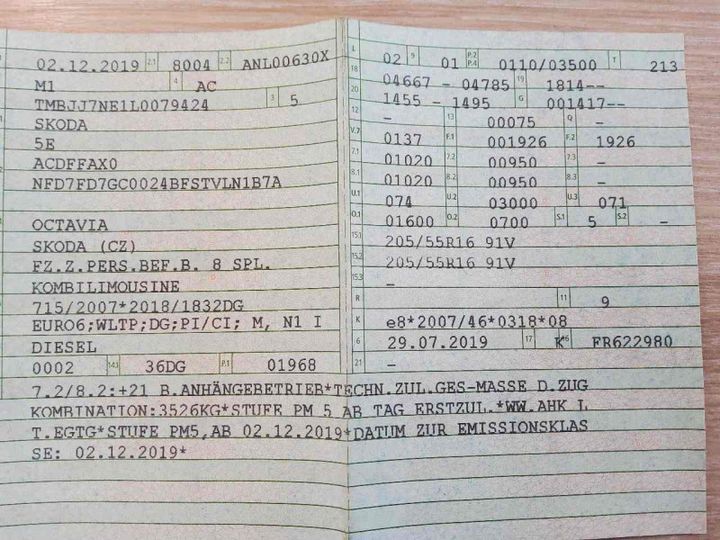 02.12.2019 2.1 8004 2.2 ANL00630X
M1 4 AC
TMBJJ7NE1L0079424 3 5
SKODA
5E
ACDFFAX0
NFD7FD7GC0024BFSTVLN1B7A
OCTAVIA
SKODA (CZ)
FZ.Z.PERS.BEF.B. 8 SPL.
KOMBILIMOUSINE
715/2007*2018/1832DG
EURO6;WLTP;DG;PI/CI; M, N1 I
DIESEL
0002 14.1 36DG P.1 01968
L 02 9 01 P.2 P.4 0110/03500 T 213
18 04667 - 04785 19 1814--
20 1455 - 1495 G 001417--
12 - 13 00075 Q -
V.7 0137 F.1 001926 F.2 1926
7.1 01020 7.2 00950 7.3 -
8.1 01020 8.2 00950 8.3 -
U.1 074 U.2 03000 U.3 071
O.1 01600 O.2 0700 S.1 5 S.2 -
15.1 205/55R16 91V
15.2 205/55R16 91V
15.3 -
R 11 9
K e8*2007/46*0318*08
6 29.07.2019 17 K 16 FR622980
21 -
7.2/8.2:+21 B.ANHÄNGEBETRIEB*TECHN.ZUL.GES-MASSE D.ZUG
KOMBINATION:3526KG*STUFE PM 5 AB TAG ERSTZUL.*WW.AHK L
T.EGTG*STUFE PM5,AB 02.12.2019*DATUM ZUR EMISSIONSKLAS
SE: 02.12.2019*